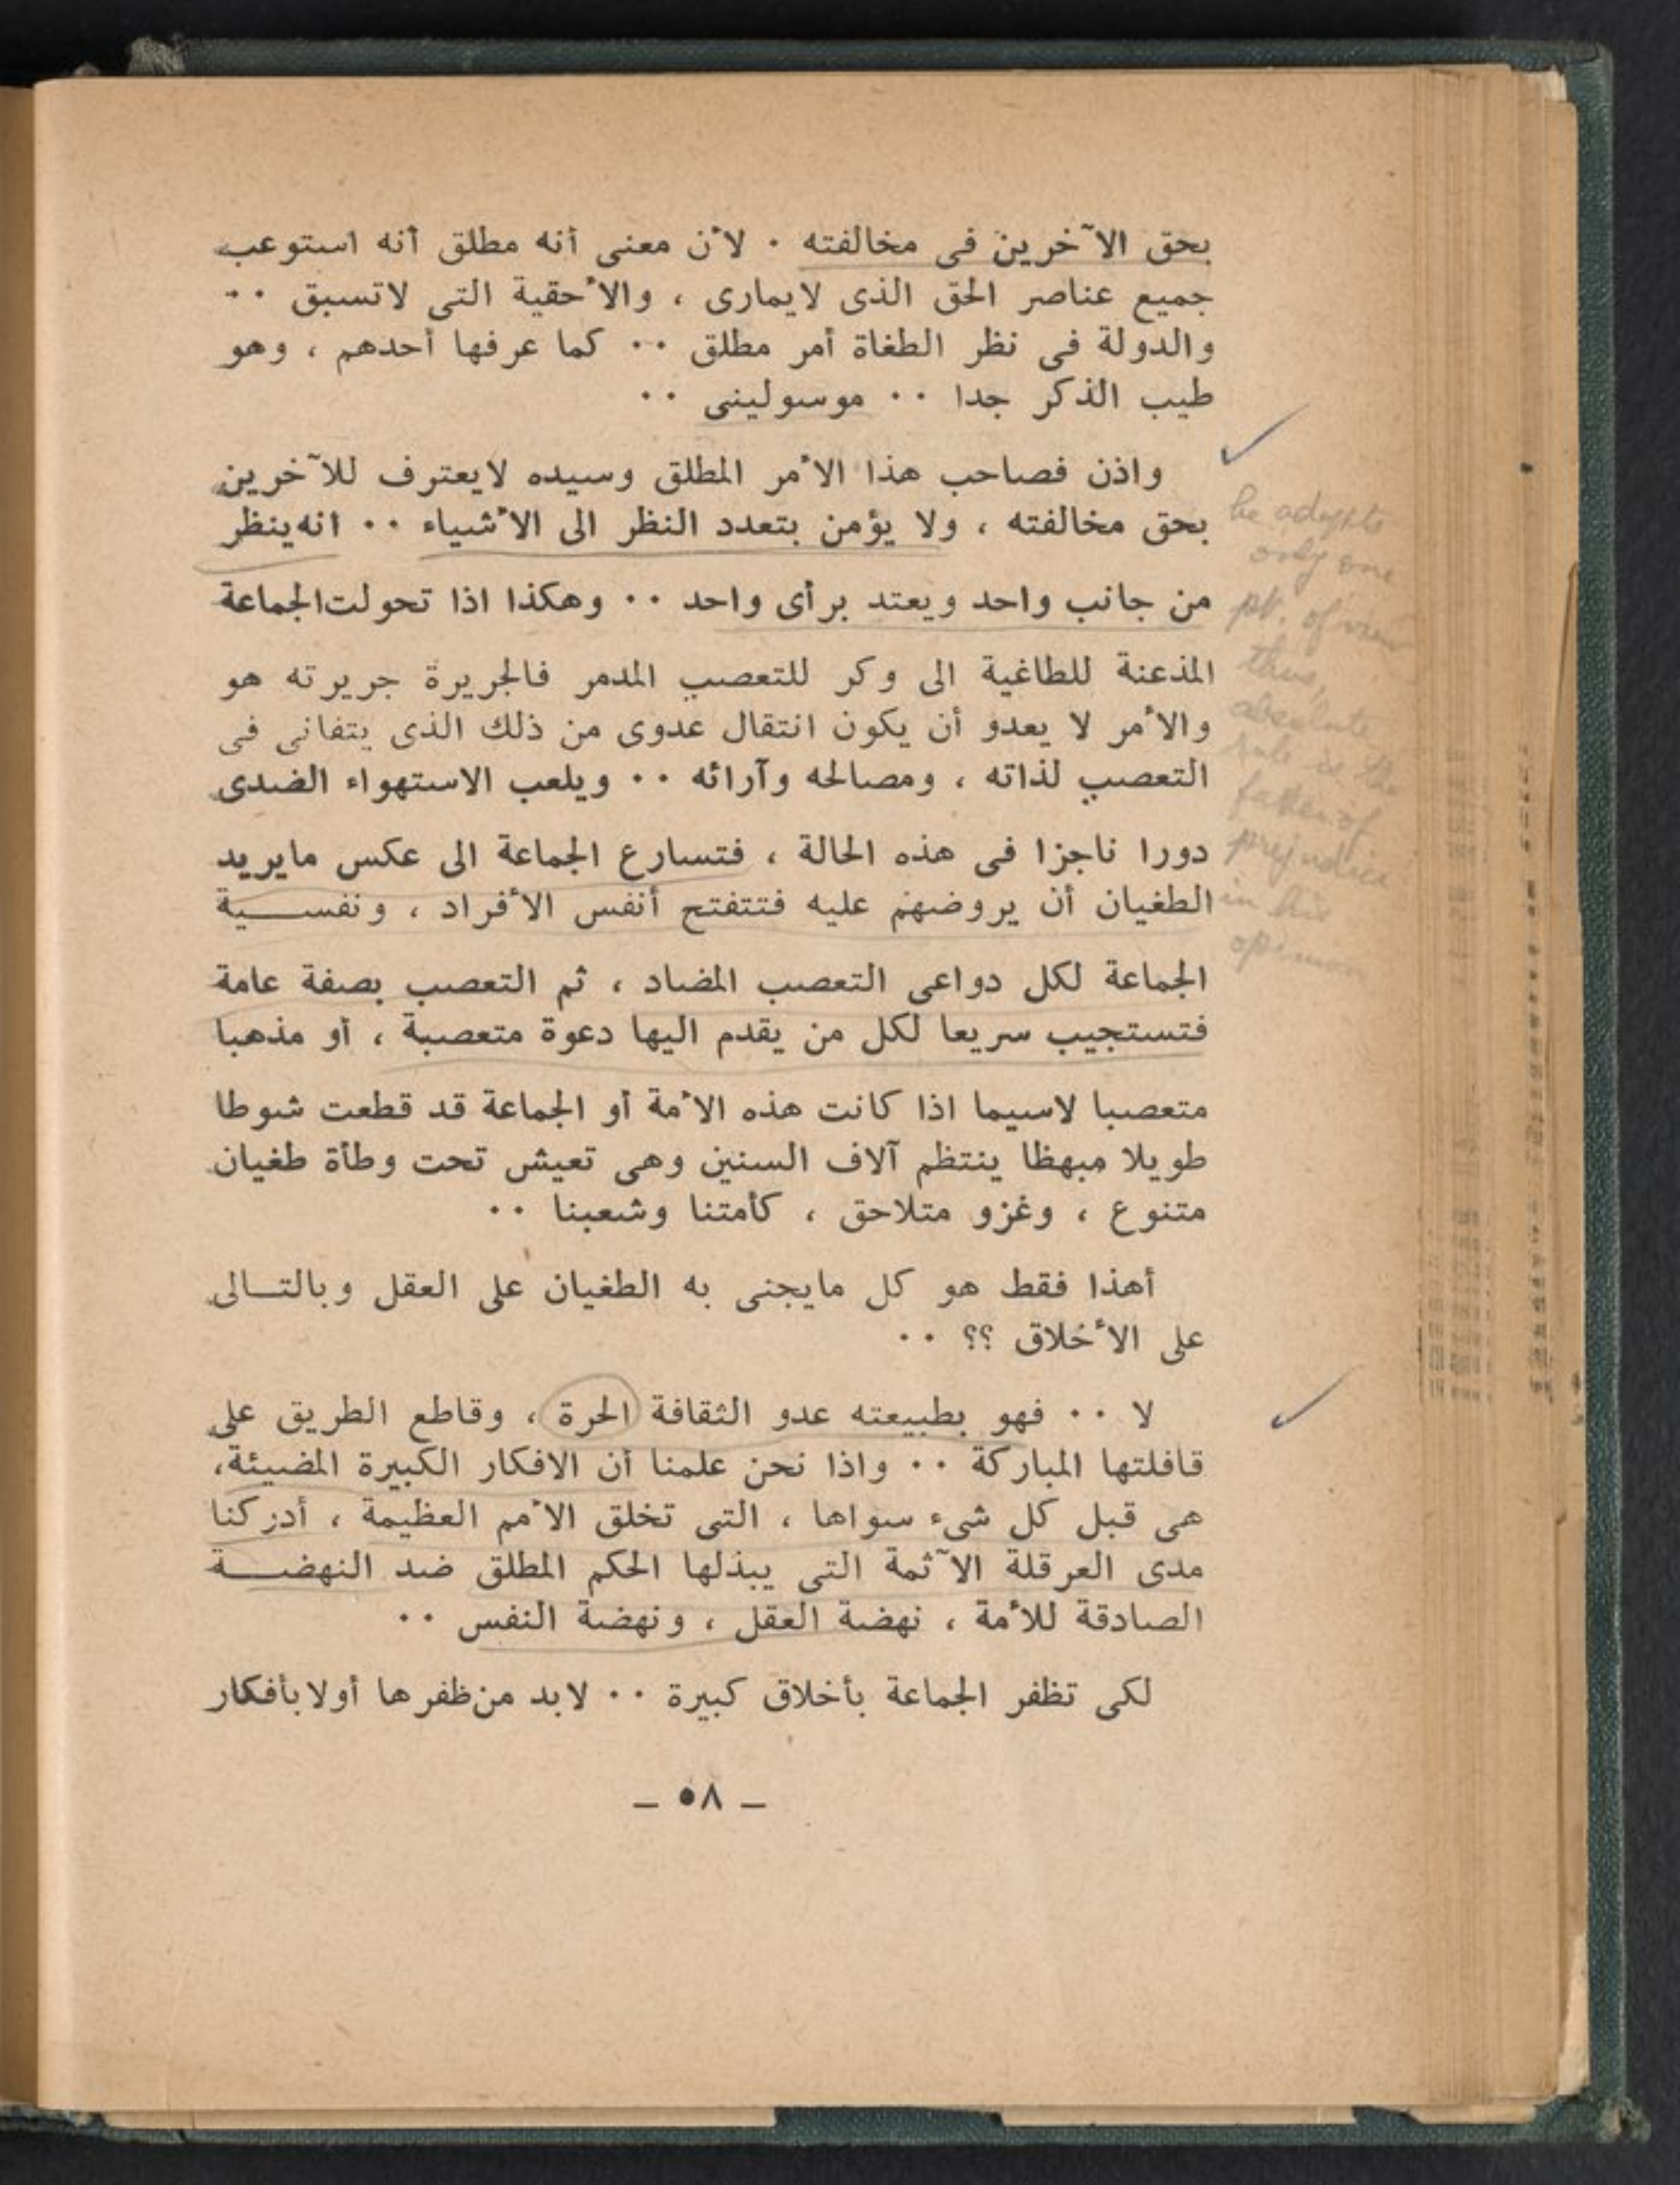 بحق الآخرين فى مخالفته ٠ لأن معنى أنه مطلق أنه استوعب
جميع عناصر الحق الذى لايمارى ، والأحقية التى لاتسبق ٠٠
والدولة فى نظر الطغاة أمر مطلق ٠٠ كما عرفها أحدهم ، وهو
طيب الذكر جدا ٠٠ موسولينى ٠٠
واذن فصاحب هذا الأمر المطلق وسيده لايعترف للآخرين
بحق مخالفته ، ولا يؤمن بتعدد النظر الى الأشياء ٠٠ انه ينظر
من جانب واحد ويعتد برأى واحد ٠٠ وهكذا اذا تحولت الجماعة
المذعنة للطاغية الى وكر للتعصب المدمر فالجريرة جريرته هو
والأمر لا يعدو أن يكون انتقال عدوى من ذلك الذى يتفانى فى
التعصب لذاته ، ومصالحه وآرائه ٠٠ ويلعب الاستهواء الضدى
دورا ناجزا فى هذه الحالة ، فتسارع الجماعة الى عكس مايريد
الطغيان أن يروضهم عليه فتتفتح أنفس الأفراد ، ونفســية
الجماعة لكل دواعى التعصب المضاد ، ثم التعصب بصفة عامة
فتستجيب سريعا لكل من يقدم اليها دعوة متعصبة ، أو مذهبا
متعصبا لاسيما اذا كانت هذه الأمة أو الجماعة قد قطعت شوطا
طويلا مبهظا ينتظم آلاف السنين وهى تعيش تحت وطأة طغيان
متنوع ، وغزو متلاحق ، كأمتنا وشعبنا ٠٠
أهذا فقط هو كل مايجنى به الطغيان على العقل وبالتــالى
على الأخلاق ؟؟ ٠٠
لا ٠٠ فهو بطبيعته عدو الثقافة الحرة ، وقاطع الطريق على
قافلتها المباركة ٠٠ واذا نحن علمنا أن الافكار الكبيرة المضيئة،
هى قبل كل شىء سواها ، التى تخلق الأمم العظيمة ، أدركنا
مدى العرقلة الآثمة التى يبذلها الحكم المطلق ضد النهضــة
الصادقة للأمة ، نهضة العقل ، ونهضة النفس ٠٠
لكى تظفر الجماعة بأخلاق كبيرة ٠٠ لابد من ظفرها أولا بأفكار
— ٥٨ —
he adopts
only one
pt. of view
thus,
absolute
rule is the
father of
prejudice
in his
opinion